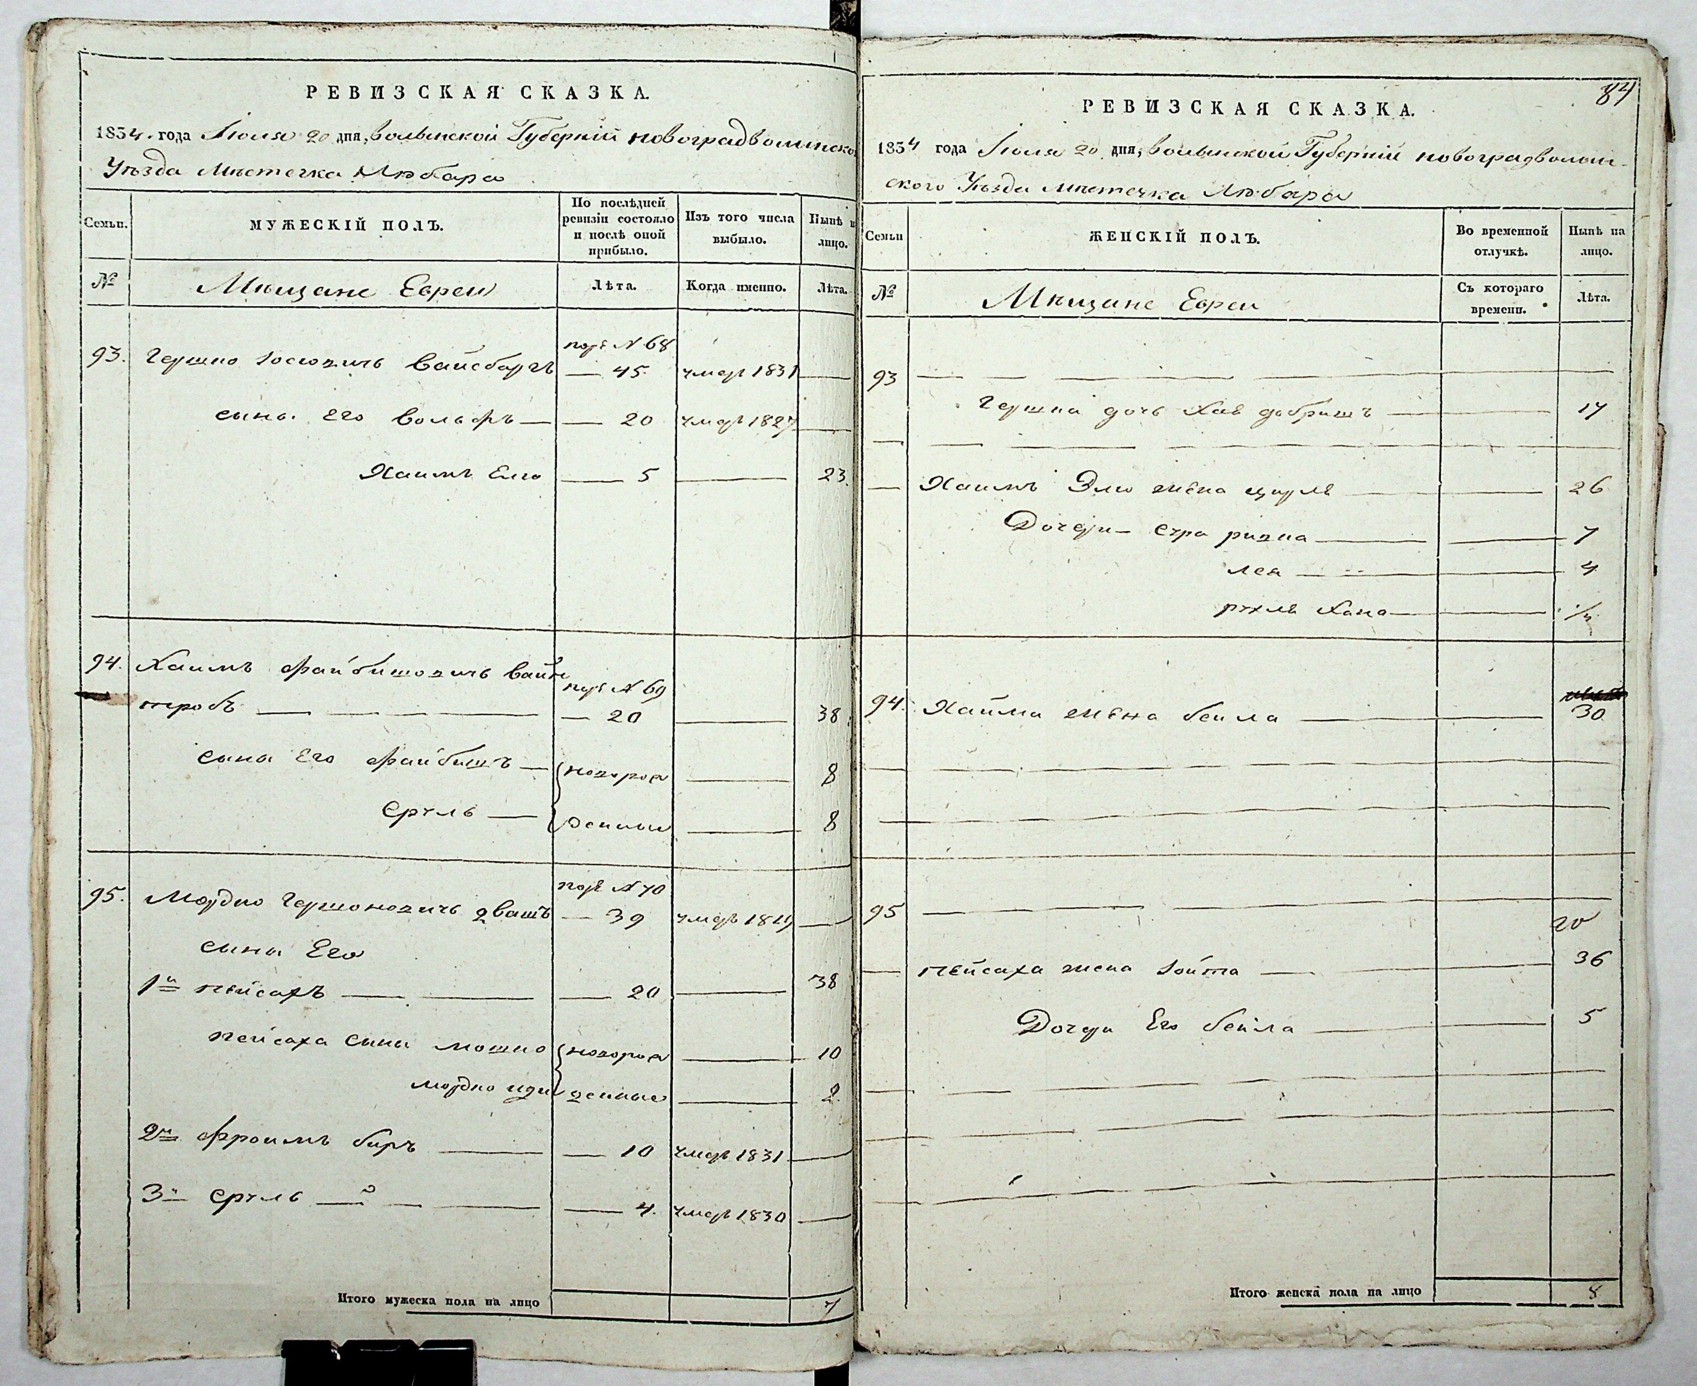 РЕВИЗСКАЯ СКАЗКА.
1834. года Іюля 20 дня, Волынской Губерніи Новоградволынско
Уѣзда Мѣстечка Любара
Семьи.
МУЖЕСКІЙ ПОЛЪ.
По послѣдней ревизіи состояло и послѣ оной прибыло.
Изъ того числа выбыло.
Нынѣ н лицо.
№
Мѣщане Евреи
Лѣта.
Когда именно.
Лѣта.
93. Гершко Іосіовичъ Вайсбаргъ
подъ N 68
— 45 умеръ 1831 —
сынъ Его Вольфъ — — 20 умеръ 1827 —
Хаимъ Елю — 5 — 23.
94. Хаимъ Файбишовичъ Вайн
подъ N 69
тробъ — — — — 20 — 38.
сыны Его Файбишъ — новорож — 8
Сруль — денныи — 8
95. Мордко Гершоновичъ
подъ N 70
— 39 умеръ 1819 —
сыны Его
1й Пейсахъ — — — 20 — 38
Пейсаха сыны Мошко новорож — 10
Мордко денные — 2.
2й Фроимъ Беръ — — 10 умеръ 1831 —
3й Сруль — — — 4. умеръ 1830 —
Итого мужеска пола на лицо 7
84
РЕВИЗСКАЯ СКАЗКА.
1834 года Іюля 20 дня, Волынской Губерніи Новоградволын-
ского Уѣзда Мѣстечка Любара
Семьи
ЖЕНСКІЙ ПОЛЪ.
Во временной отлучкѣ.
Нынѣ на лицо.
№
Мѣщане Евреи
Съ котораго времени.
Лѣта.
93 — — — — — —
Гершка дочь Хая Добришъ — — 17
— — — — — —
— Хаимъ Элю жена Цирля — — 26
Дочери — Сура Ривка — — 7
Лея — — 4
Рухля Хана — —
94. Хайма жена Бейла — — 30
— — — — — —
— — — — — —
95 — — — — —
— Пейсаха жена Іойта — — 36
Дочери Его Бейла — — 5
— — — — — —
— — — — — —
— — — — — —
Итого женска пола на лицо 8